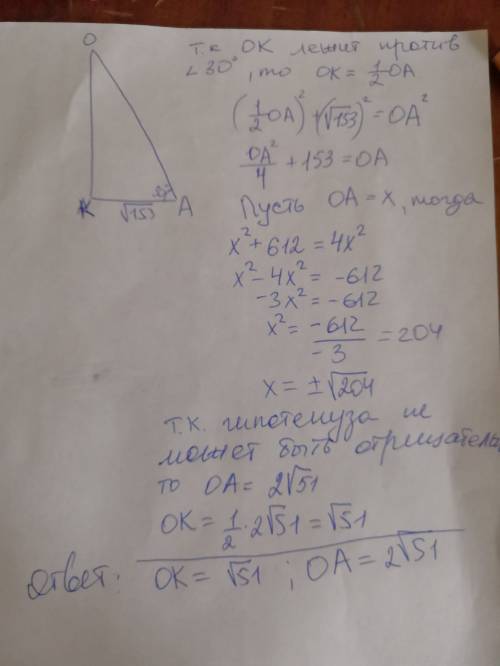 O
Т.к OK лежит против
∠30°, то OK = 1/2 OA
(1/2 OA)² + (√153)² = OA²
OA²/4 + 153 = OA
30°
K √153 A
Пусть OA = x, тогда
x² + 612 = 4x²
x² - 4x² = -612
-3x² = -612
x² = -612/-3 = 204
x = ±√204
Т.К. гипотенуза не
может быть отрицательн,
то OA = 2√51
OK = 1/2 · 2√51 = √51
Ответ: OK = √51 ; OA = 2√51